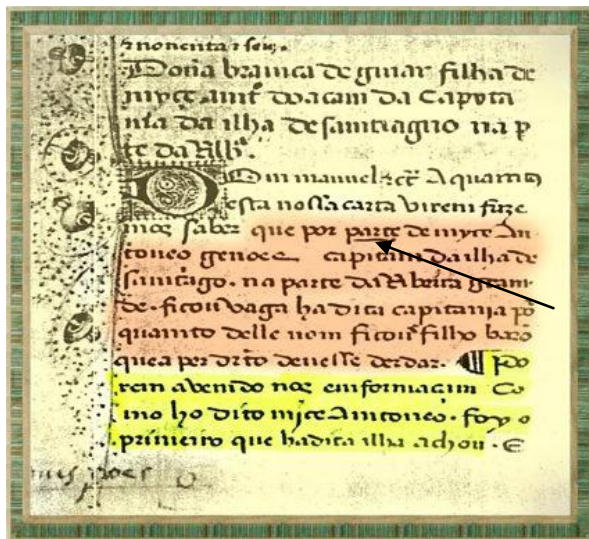 e noventa e seis.
Dona branca de guiar filha de
myce ant.º doacam da Capota
nia da ilha de santiaguo na p
te da Rib.ª
Dom manuel &cct A quamtos
esta nossa carta virem faze
mos saber que por parte de myce An
toneo genoes capitam da ilha de
santiago. na parte da Ribeira gram
de. ficou vaga ha dita capitania por
quamto delle nom ficou filho baro
que a per drto devesse derdar. Po
rem avendo nos emformaçam Co
mo ho dito myce Amtoneo. foy o
primeiro que ha dita ilha achou. E